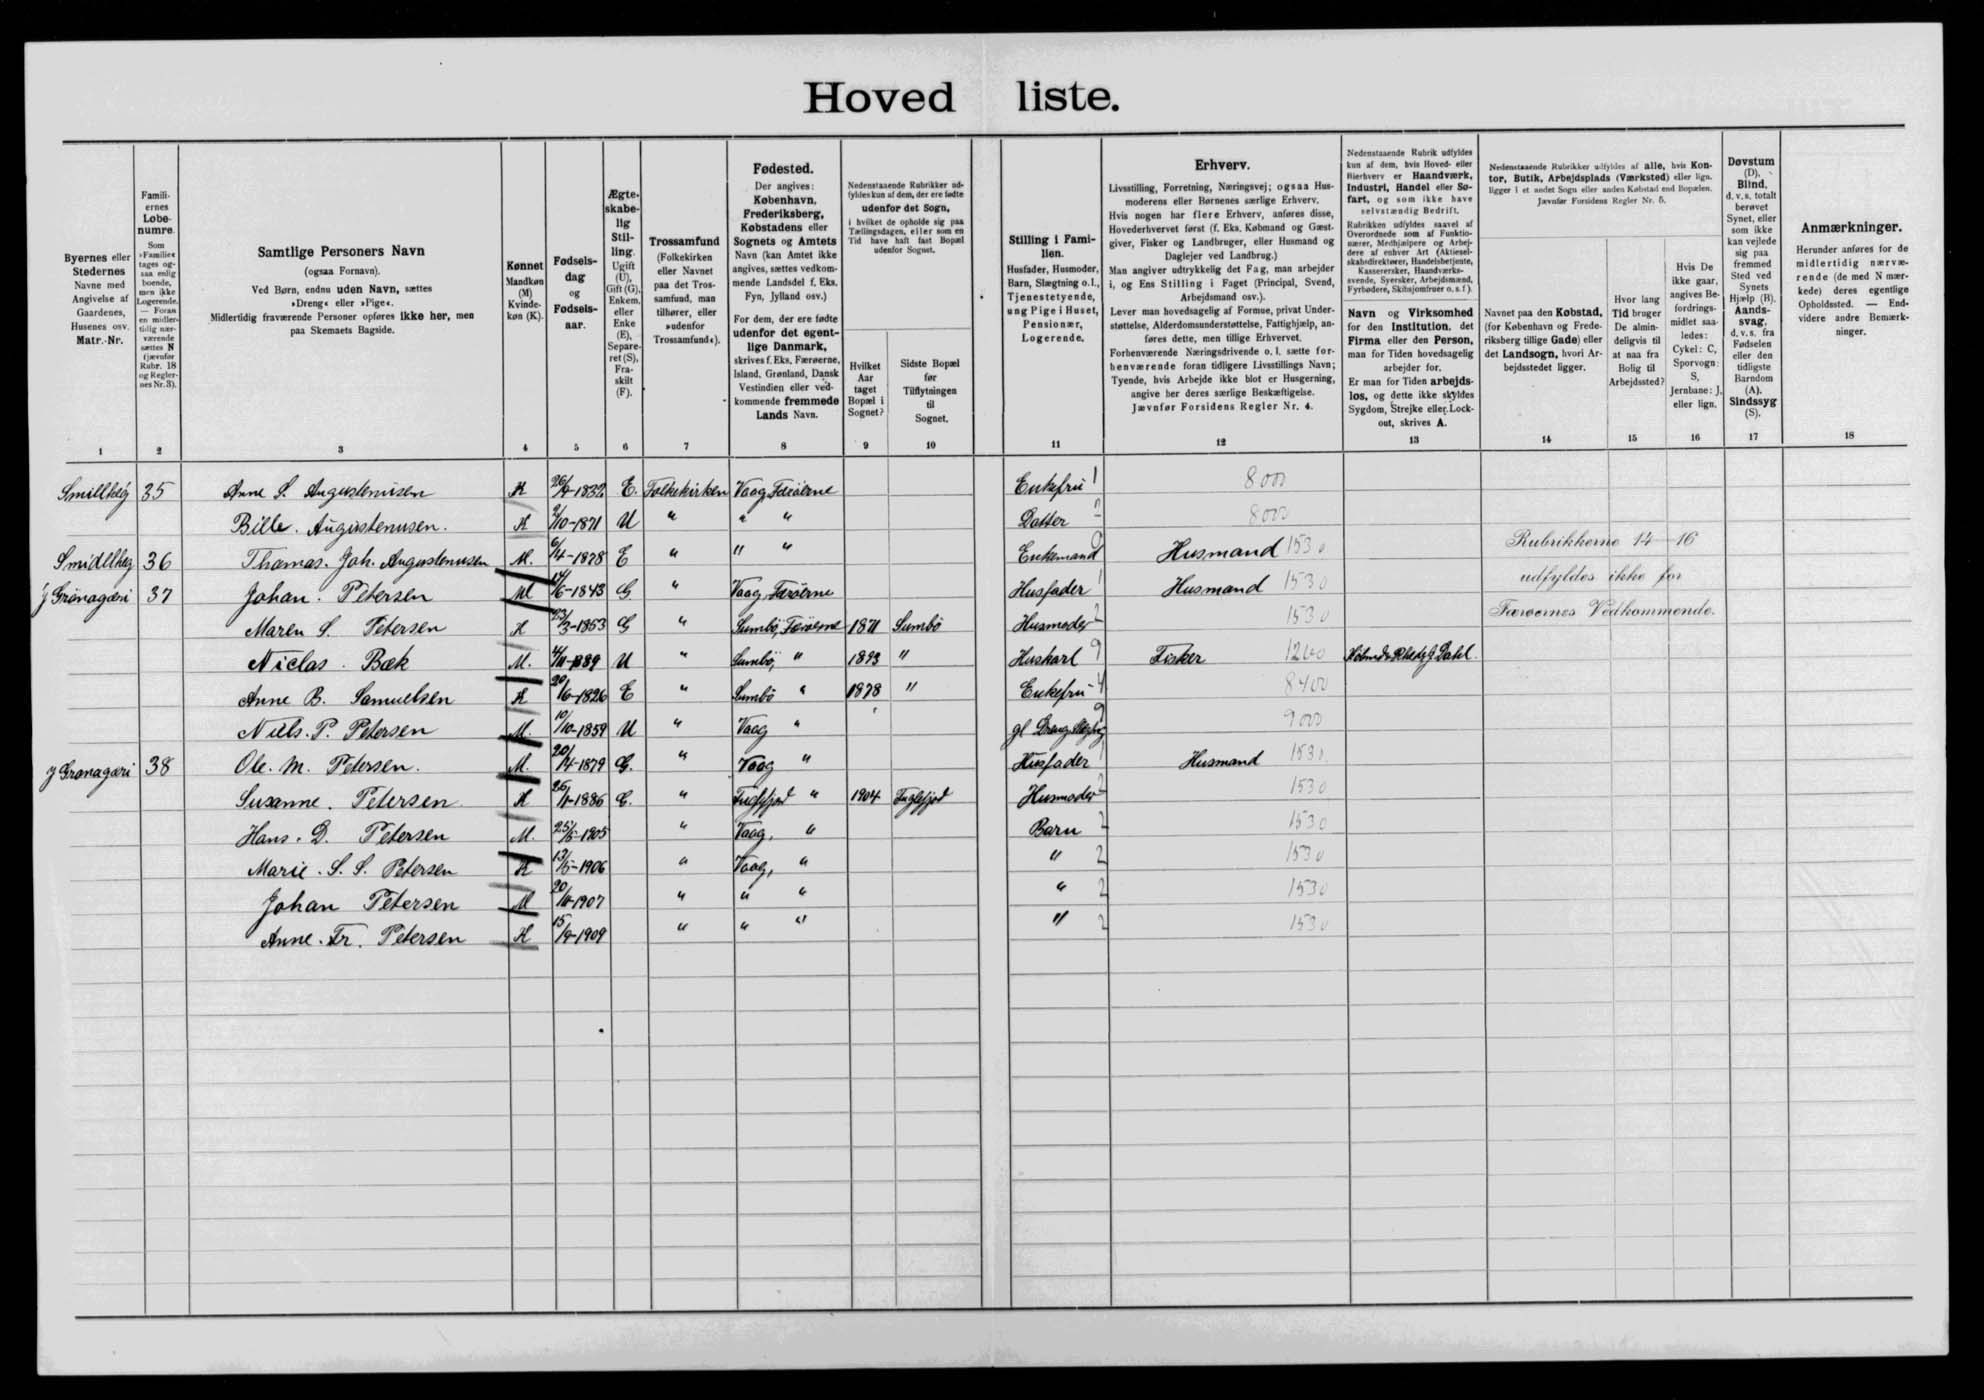 Hoved liste.
Byernes eller
Stedernes
Navne med
Angivelse af
Gaardenes,
Husenes osv.
Matr.-Nr.
Famili-
ernes
Løbe-
numre.
Som
»Familie«
tages og-
saa enlig
boende,
men ikke
Logerende.
— Foran
en midler-
tidig nær-
værende
sættes N
(jævnfør
Rubr. 18
og Regler-
nes Nr. 3).
Samtlige Personers Navn
(ogsaa Fornavn).
Ved Børn, endnu uden Navn, sættes
»Dreng« eller »Pige«.
Midlertidig fraværende Personer opføres ikke her, men
paa Skemaets Bagside.
Kønnet
Mandkøn
(M)
Kvinde-
køn (K).
Fødsels-
dag
og
Fødsels-
aar.
Ægte-
skabe-
lig
Stil-
ling.
Ugift
(U),
Gift (G),
Enkem.
eller
Enke
(E),
Separe-
ret (S),
Fra-
skilt
(F).
Trossamfund
(Folkekirken
eller Navnet
paa det Tros-
samfund, man
tilhører, eller
»udenfor
Trossamfund«).
Fødested.
Der angives:
København,
Frederiksberg,
Købstadens eller
Sognets og Amtets
Navn (kan Amtet ikke
angives, sættes vedkom-
mende Landsdel f. Eks.
Fyn, Jylland osv.)
For dem, der ere fødte
udenfor det egent-
lige Danmark,
skrives f. Eks. Færøerne,
Island, Grønland, Dansk
Vestindien eller ved-
kommende fremmede
Lands Navn.
Nedenstaaende Rubrikker ud-
fyldes kun af dem, der ere fødte
udenfor det Sogn,
i hvilket de opholde sig paa
Tællingsdagen, eller som en
Tid have haft fast Bopæl
udenfor Sognet.
Hvilket
Aar
taget
Bopæl i
Sognet?
Sidste Bopæl
før
Tilflytningen
til
Sognet.
Stilling i Fami-
lien.
Husfader, Husmoder,
Barn, Slægtning o.l.,
Tjenestetyende,
ung Pige i Huset,
Pensionær,
Logerende.
Erhverv.
Livsstilling, Forretning, Næringsvej; ogsaa Hus-
moderens eller Børnenes særlige Erhverv.
Hvis nogen har flere Erhverv, anføres disse,
Hovederhvervet først (f. Eks. Købmand og Gæst-
giver, Fisker og Landbruger, eller Husmand og
Daglejer ved Landbrug.)
Man angiver udtrykkelig det Fag, man arbejder
i, og Ens Stilling i Faget (Principal, Svend,
Arbejdsmand osv.).
Lever man hovedsagelig af Formue, privat Under-
støttelse, Alderdomsunderstøttelse, Fattighjælp, an-
føres dette, men tillige Erhvervet.
Forhenværende Næringsdrivende o. l. sætte for-
henværende foran tidligere Livsstillings Navn;
Tyende, hvis Arbejde ikke blot er Husgerning,
angive her deres særlige Beskæftigelse.
Jævnfør Forsidens Regler Nr. 4.
Nedenstaaende Rubrik udfyldes
kun af dem, hvis Hoved- eller
Bierhverv er Haandværk,
Industri, Handel eller Sø-
fart, og som ikke have
selvstændig Bedrift.
Rubrikken udfyldes saavel af
Overordnede som af Funktio-
nærer, Medhjælpere og Arbej-
dere af enhver Art (Aktiesel-
skabsdirektører, Handelsbetjente,
Kassererske, Haandværks-
svende, Syersker, Arbejdsmænd,
Fyrbødere, Skibsjomfruer o. s. f.).
Navn og Virksomhed
for den Institution, det
Firma eller den Person,
man for Tiden hovedsagelig
arbejder for.
Er man for Tiden arbejds-
løs, og dette ikke skyldes
Sygdom, Strejke eller Lock-
out, skrives A.
Nedenstaaende Rubrikker udfyldes af alle, hvis Kon-
tor, Butik, Arbejdsplads (Værksted) eller lign.
ligger i et andet Sogn eller anden Købstad end Bopælen.
Jævnfør Forsidens Regler Nr. 5.
Navnet paa den Købstad,
(for København og Frede-
riksberg tillige Gade) eller
det Landsogn, hvori Ar-
bejdsstedet ligger.
Hvor lang
Tid bruger
De almin-
deligvis til
at naa fra
Bolig til
Arbejdssted?
Hvis De
ikke gaar,
angives Be-
fordrings-
midlet saa-
ledes:
Cykel: C,
Sporvogn:
S,
Jernbane: J,
eller lign.
Døvstum
(D),
Blind,
d. v. s. totalt
berøvet
Synet, eller
som ikke
kan vejlede
sig paa
fremmed
Sted ved
Synets
Hjælp (B),
Aands-
svag,
d. v. s. fra
Fødselen
eller den
tidligste
Barndom
(A),
Sindssyg
(S).
Anmærkninger.
Herunder anføres for de
midlertidig nærvæ-
rende (de med N mær-
kede) deres egentlige
Opholdssted. — End-
videre andre Bemærk-
ninger.
1 2 3 4 5 6 7 8 9 10 11 12 13 14 15 16 17 18
35 Anne S. Augustenusen K 26/9-1832 E. Folkekirken Vaag Færöerne Enkefru 1 8000
Bille. Augustenusen. K 2/10-1871 U " " " Datter 2 8000
36 Thomas. Joh. Augustenusen M. 6/4-1878 E " " " Enkemand 9 Husmand 1530 Rubrikkerne 14-16
37 Johan. Petersen M 14/6-1843 G " Vaag, Færöerne Husfader 1 Husmand 1530 udfyldes ikke for
Maren S. Petersen K 23/3-1853 G " Sumbö, Færöerne 1871 Sumbö Husmoder 2 1530 Færøernes Vedkommende.
Niclas. Bæk M. 4/11-1889 U " Sumbö, " 1893 " Huskarl 9 Fisker 1200
Anne B. Samuelsen K 20/6-1826 E " Sumbö " 1878 " Enkefru 4 8400
Niels. P. Petersen M. 10/10-1859 U " Vaag " gl 9 9000
38 Ole. M. Petersen. M. 20/4-1879 G. " Vaag " Husfader 1 Husmand 1530
Susanne. Petersen K 26/1-1886 G. " Fuglefjord " 1904 Fuglefjod Husmoder 2 1530
Hans. D. Petersen M. 25/5-1905 " Vaag, " Barn 2 1530
Marie. S. S. Petersen K 13/5-1906 " Vaag, " " 2 1530
Johan Petersen M 20/11-1907 " " " " 2 1530
Anne. Fr. Petersen K 15/9-1909 " " " " 2 1530